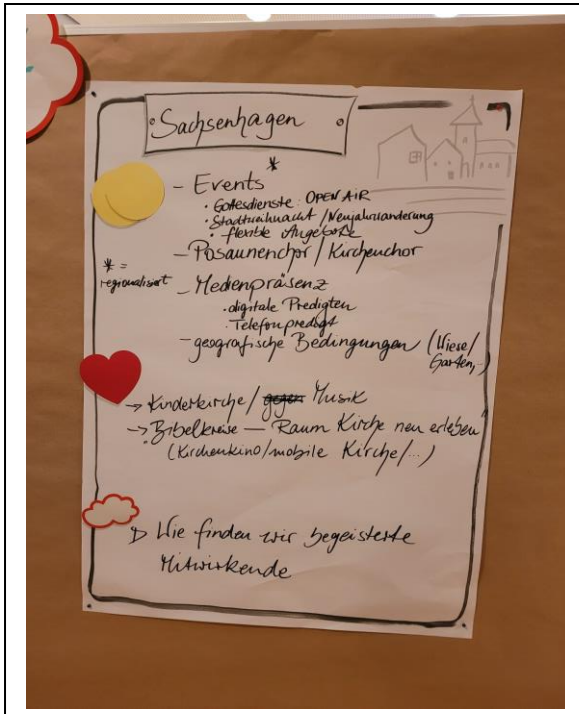 Sachsenhagen
*
- Events
• Gottesdienste OPEN AIR
• Stadtweihnacht / Neujahrwanderung
• flexible Angebote
- Posaunenchor / Kirchenchor
* =
regionalisiert
- Medienpräsenz
• digitale Predigten
• Telefonpredigt
- geografische Bedingungen (Wiese/
Garten,..)
→ Kinderkirche / gegen Musik
→ Bibelkreise — Raum Kirche neu erleben
(Kirchenkino/mobile Kirche/...)
▷ Wie finden wir begeisterte
Mitwirkende